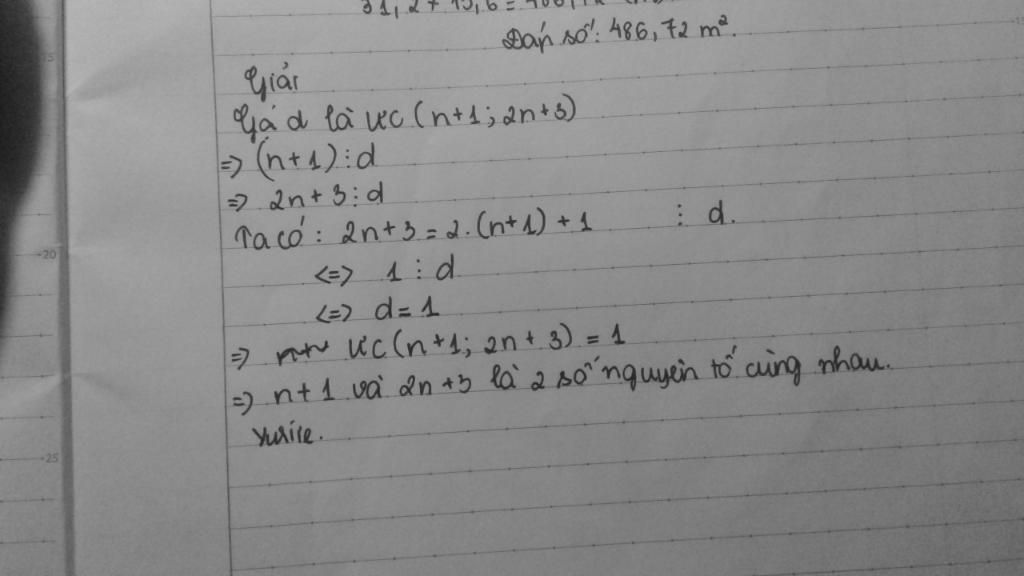 Đáp số: 486,72 m².
Giải
Gọi d là ƯC (n+1; 2n+3)
=> (n+1)⋮d
=> 2n+3⋮d
Ta có: 2n+3 = 2.(n+1) + 1 ⋮ d.
<=> 1 ⋮ d
<=> d = 1
=> ƯC(n+1; 2n+3) = 1
=> n+1 và 2n+3 là 2 số nguyên tố cùng nhau.
20
25